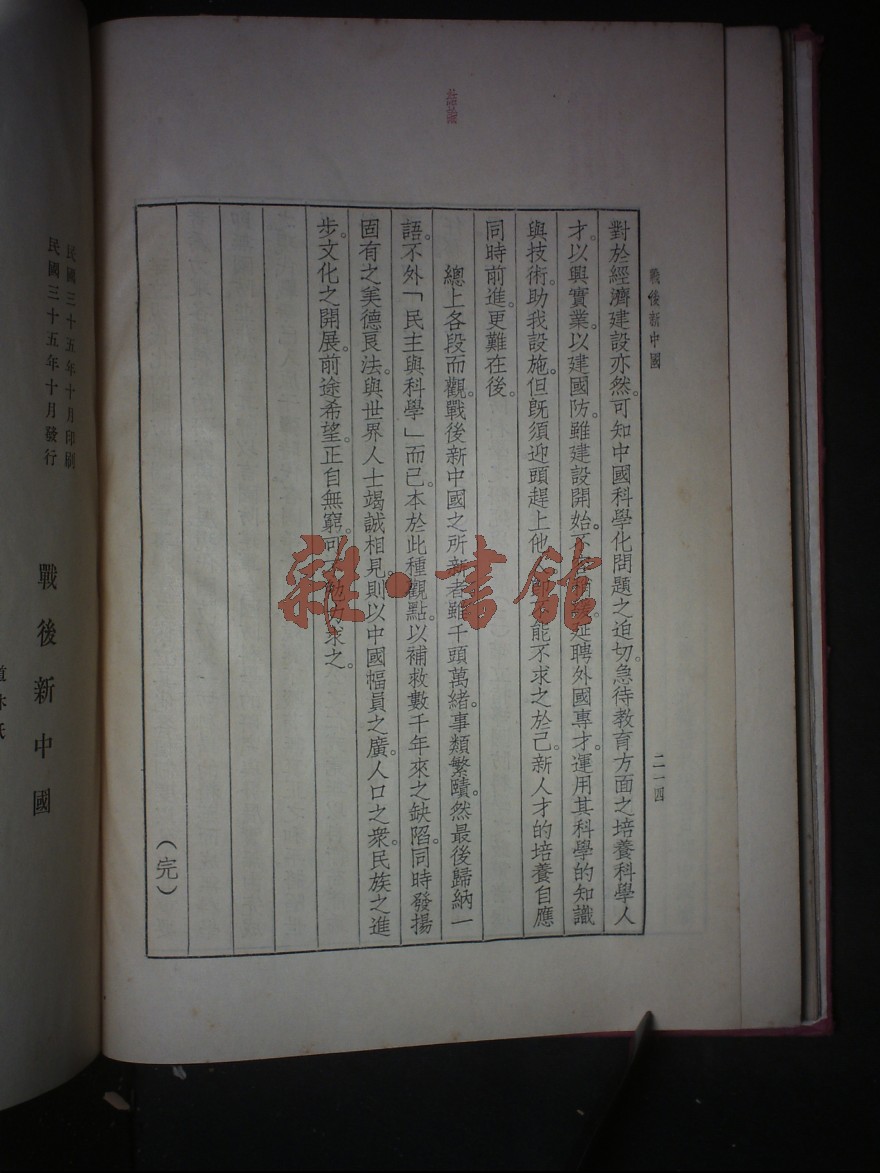 戰後新中國
二一四
對於經濟建設亦然。可知中國科學化問題之迫切。急待教育方面之培養科學人
才。以興實業。以建國防。雖建設開始。不延聘外國專才。運用其科學的知識
與技術。助我設施。但既須迎頭趕上他能不求之於己。新人才的培養自應
同時前進。更難在後。
總上各段而觀。戰後新中國之所新者雖千頭萬緒。事類繁賾。然最後歸納一
語。不外「民主與科學」而已。本於此種觀點。以補救數千年來之缺陷。同時發揚
固有之美德良法。與世界人士竭誠相見。則以中國幅員之廣。人口之衆。民族之進
步。文化之開展。前途希望。正自無窮。可勉力求之。
（完）
雜·書館
民國三十五年十月印刷
民國三十五年十月發行
戰後新中國